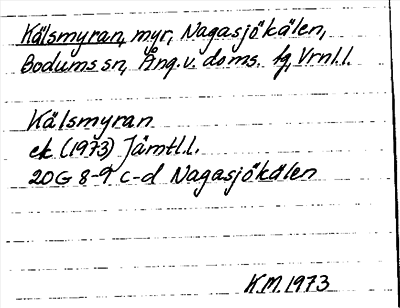 Kälsmyran, myr, Nagasjökälen,
Bodums sn, Ång. v. doms. tg, Vrnl.l.
Kälsmyran
ek. (1973) Jämtl.l.
20G 8-9 c-d Nagasjökälen
K.M. 1973